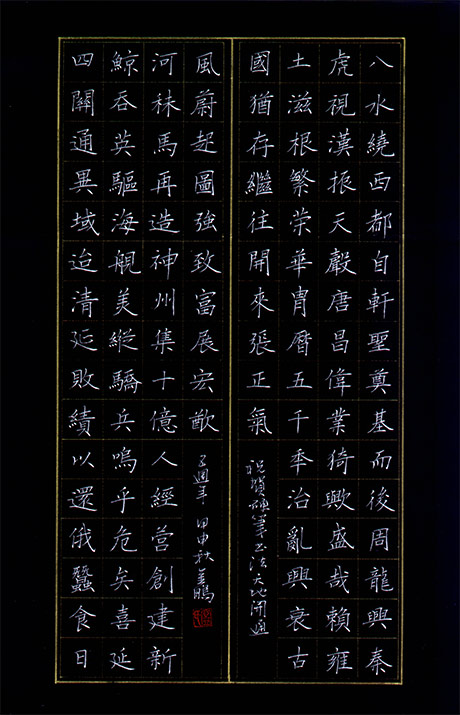 八水繞西都自軒聖奠基而後周龍興秦
虎視漢振天聲唐昌偉業猗歟盛哉賴雍
土滋根繁荣華冑曆五千秊治亂興衰古
國猶存繼往開來張正氣
四關通異域迨清廷敗績以還俄蠶食日
鯨吞英驅海艦美縱驕兵嗚乎危矣喜延
河秣馬再造神州集十億人經营創建新
風蔚起圖強致富展宏猷
祝賀硬筆书法天地開通
週年 甲申秋 姜鵬